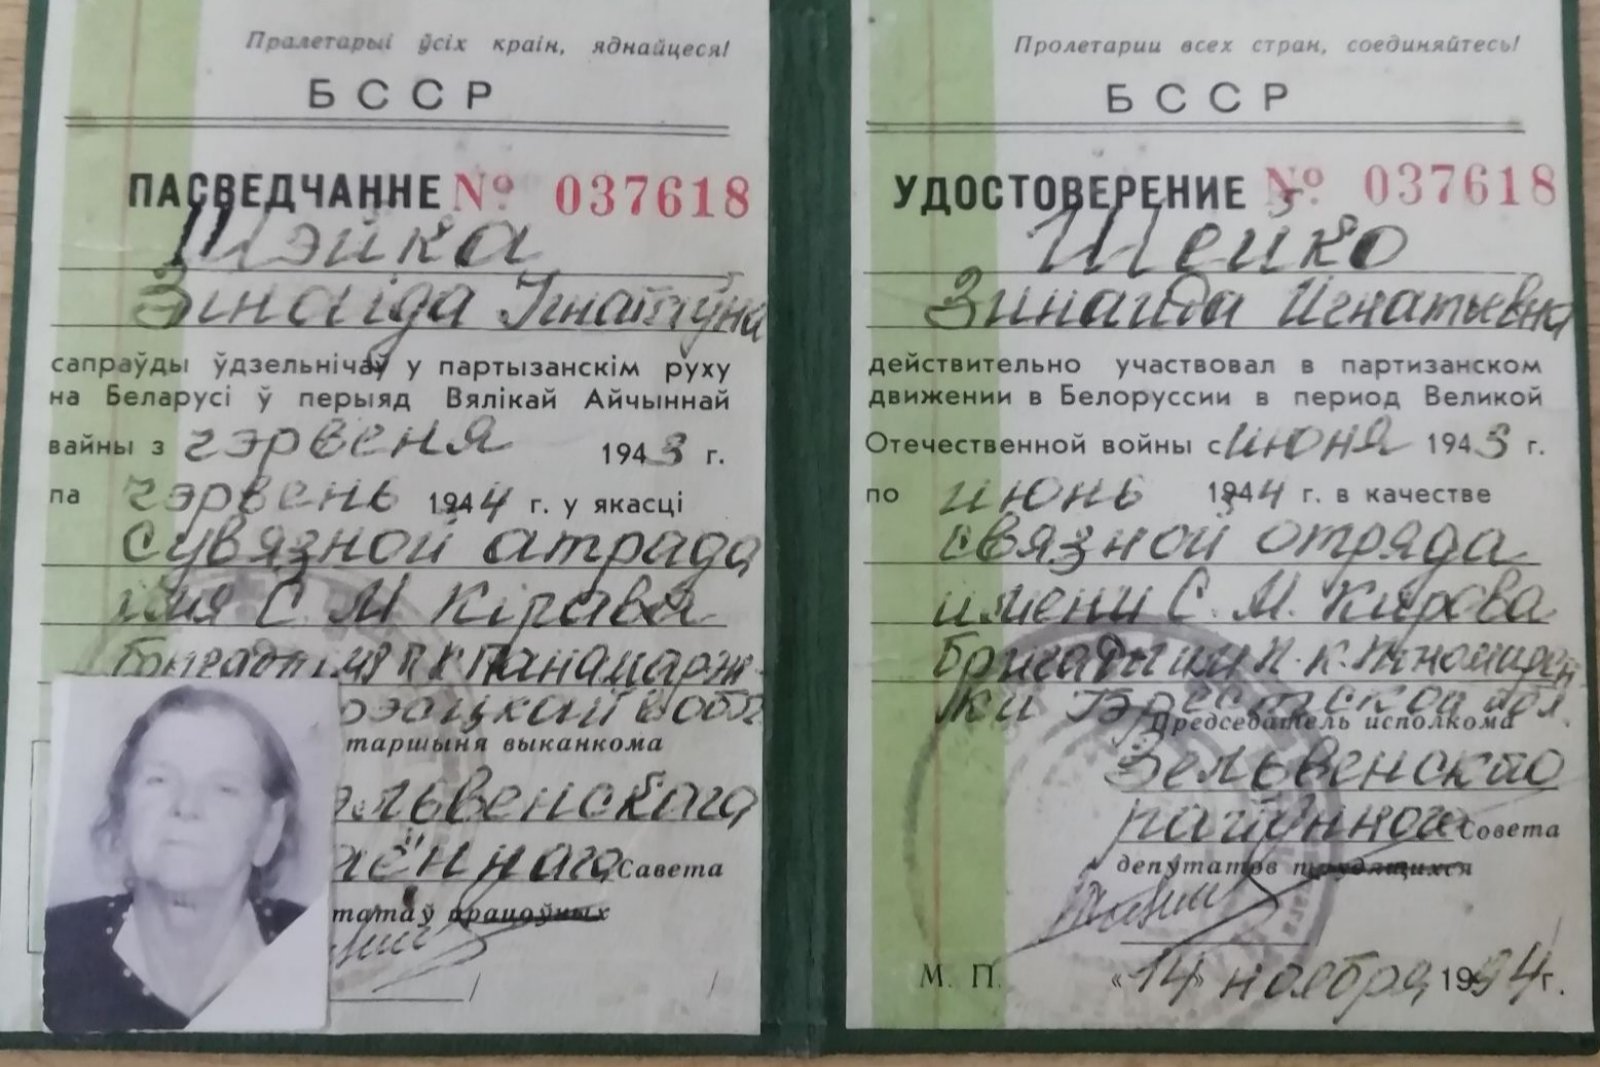 Пралетарыі ўсіх краін, яднайцеся!
БССР
ПАСВЕДЧАННЕ № 037618
Шэйка
Зінаіда Ігнатаўна
сапраўды ўдзельнічаў у партызанскім руху
на Беларусі ў перыяд Вялікай Айчыннай
вайны з чэрвеня 1943 г.
па чэрвень 1944 г. у якасці
сувязной атрада
імя С. М. Кірава
таршыня выканкома
эльвенскага
Савета
татаў працоўных
Пролетарии всех стран, соединяйтесь!
БССР
УДОСТОВЕРЕНИЕ № 037618
Шейко
Зинаида Игнатьевна
действительно участвовал в партизанском
движении в Белоруссии в период Великой
Отечественной войны с июня 1943 г.
по июнь 1944 г. в качестве
связной отряда
имени С. М. Кирова
бригады им П. К. Пономарен
ки Брестской обл.
Председатель исполкома
Зельвенского
районного Совета
депутатов трудящихся
М. П. «14» ноября 1994 г.